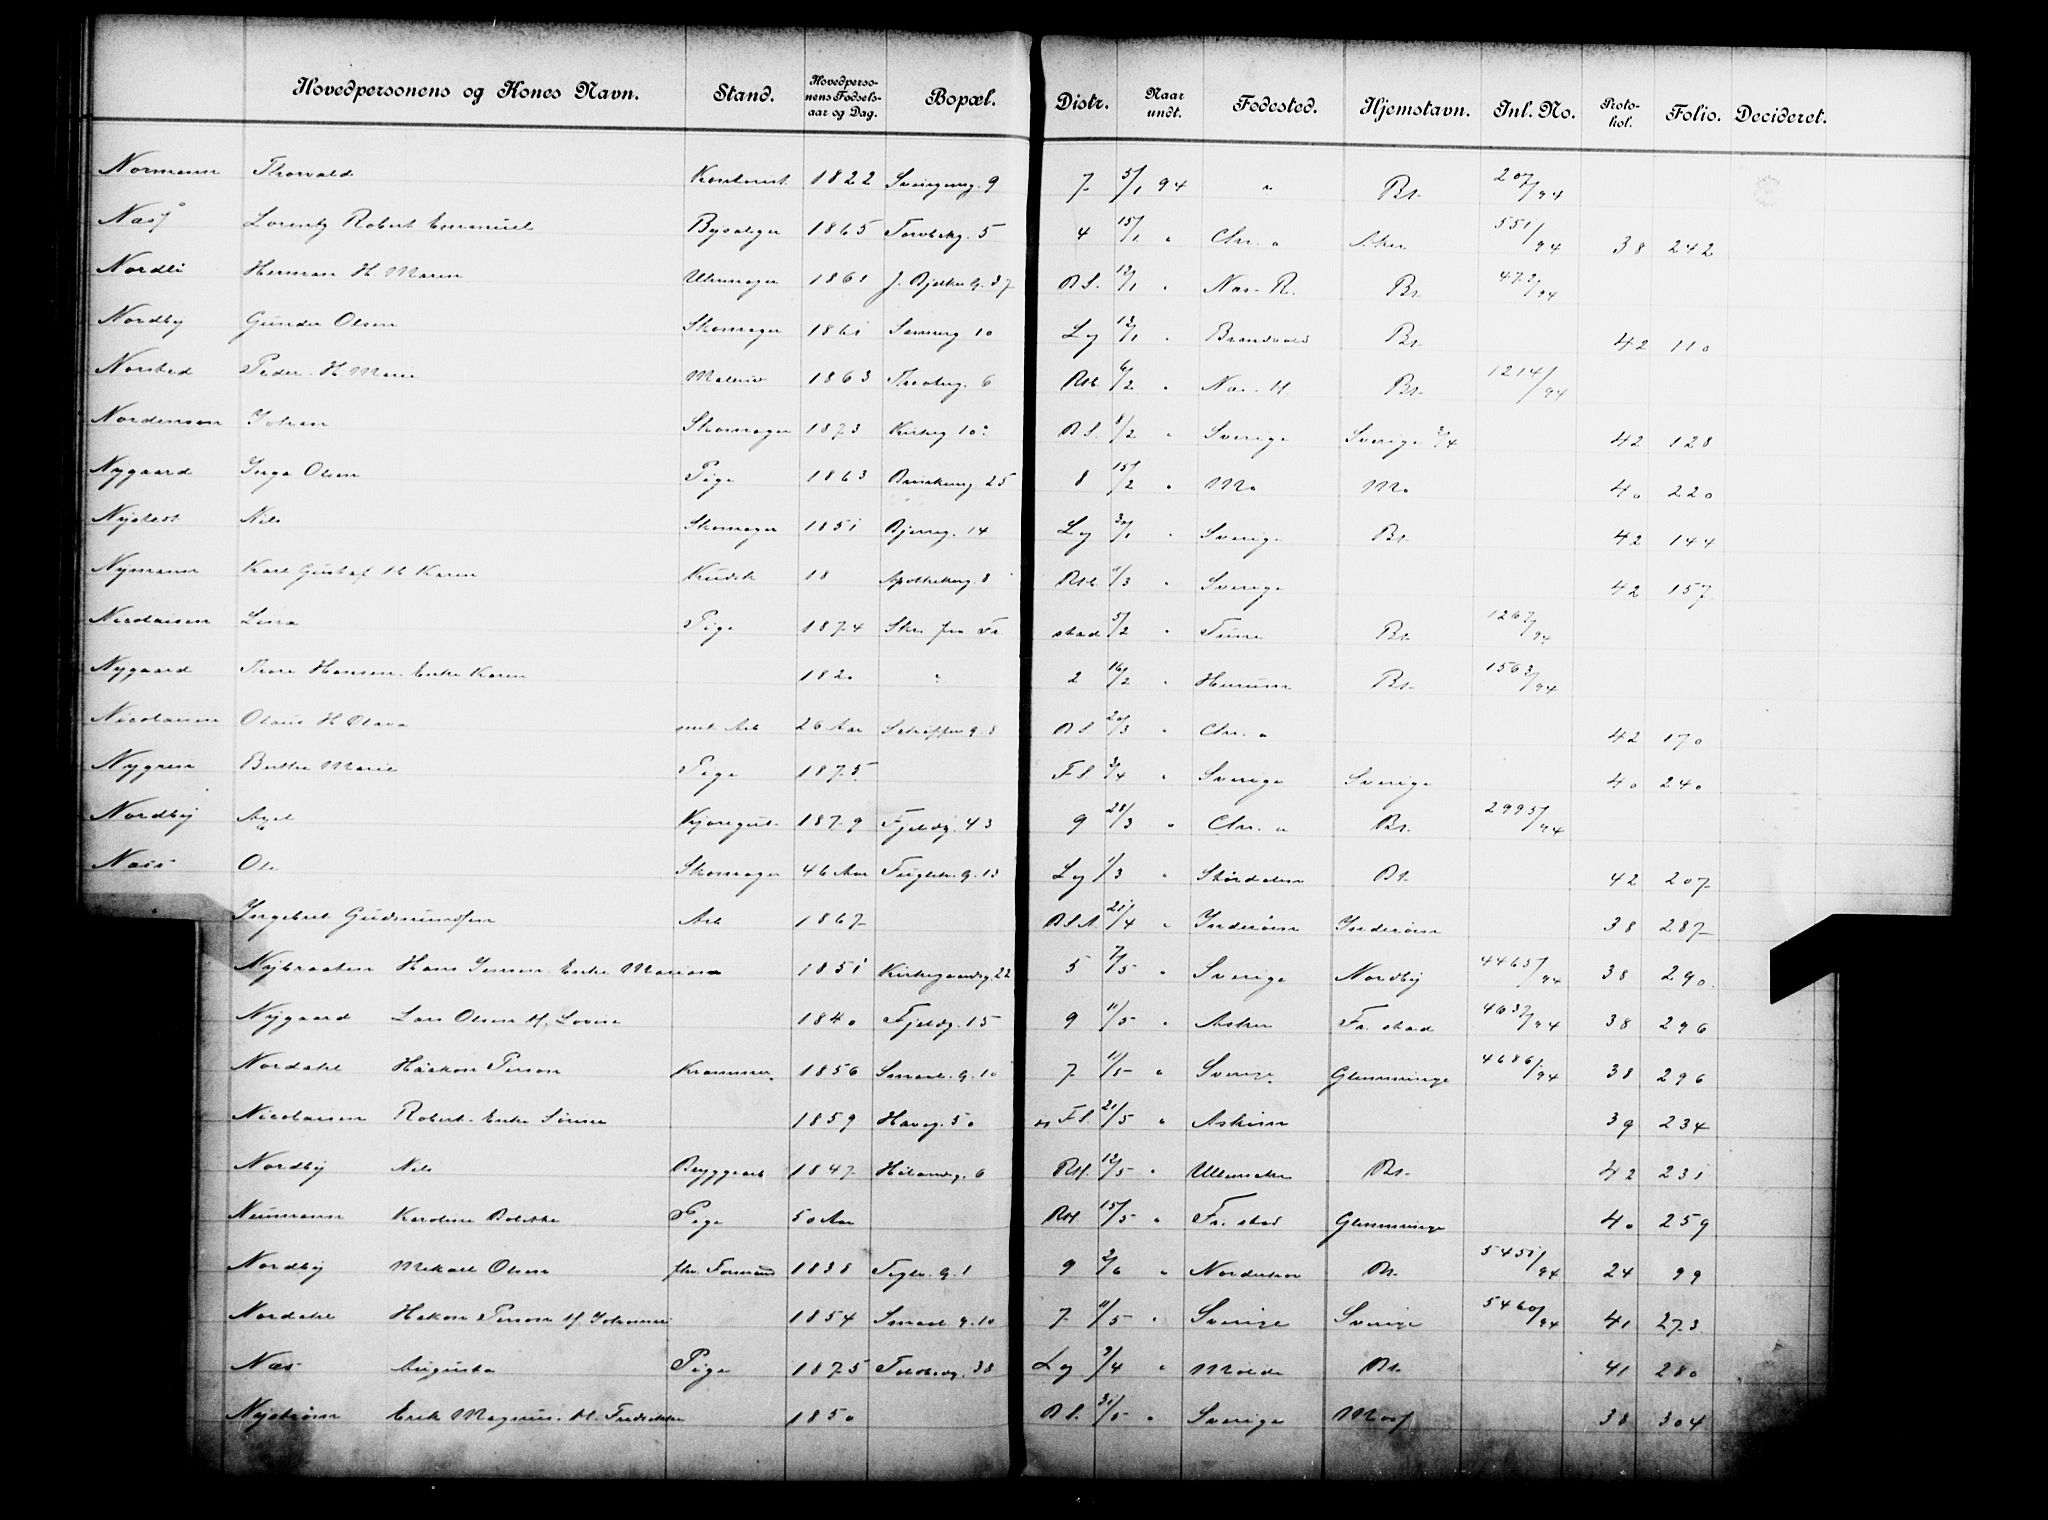 Hovedpersonens og Kones Navn. Stand. Hovedpersonens Fødselsaar og Dag. Bopæl. Distr. Naar undt. Fødested. Hjemstavn. Inl. No. Protokol. Folio. Decideret.
Normann Thorvald Kontorist 1822 9 7 5/1 94 " Bt. 207/94
Næss Lorentz Robert Emanuel Bysælger 1865 5 4 15/1 " Chr.a Aker 551/94 38 242
Nordli Herman H Maren Uhrmager 1861 J. Bjelkes G. 37 B S. 12/1 " Næs. R. Bt. 472/94
Nordby Gunder Olsen Skomager 1861 10 Ly 12/1 " Brandvold Bt. 42 110
Norstad Peder. H. Marie 1863 6 RH. 6/2 " Næs. H. Bt. 1214/94
Nordenson Johan Skomager 1873 Kirkeg 10 B S. 8/2 " Sverige Sverige 42 128
Nygaard Inga Olsen Pige 1863 Brinkeng. 25 8 15/2 " Mo Mo 40 220
Nystedt Nils Skomager 1851 14 Ly 30/1 " Sverige Bt. 42 144
Nymann Karl Gustaf H. Karen Kudsk 18 Apothekerg. 8 RH. /3 " Sverige 42 157
Nicolaisen Lina Pige 1874 Skr. fra Fr stad 5/2 " Tune Bt. 1267/94
Nygaard Thore Hansen. Enke Karen 1820 " 2 16/2 " Hurum Bt. 1563/94
Nicolaisen Olaus H Olava Arb 26 Aar Schifters g. 8 B S 20/3 " Chr.a 42 170
Nygren Berthe Marie Pige 1875 F S. 3/4 " Sverige Sverige 40 240
Nordby Axel Kjøregut. 1879 Fjeldg. 43 9 28/3 " Chr.a Bt. 2995/94
Næss Ole Skomager 46 Aar Fuglek. g. 13 Ly 1/3 " Størdalen Bt. 42 207
Ingebret Gudmundsen Arb 1867 B S A. 21/4 " Inderøen Inderøen 38 287
Nybraaten Hans Jensen Enke Mariane 1851 Kirkegaardsg. 22 5 7/5 " Sverige Nordby 4465/94 38 290
Nygaard Lars Olsen H. Lovise 1840 Fjeldg. 15 9 11/5 " Asker Fr. stad 4637/94 38 296
Nordahl Håkon Person Kræmmer 1856 Smed. G. 10 7 11/5 " Sverige Glemminge 4686/94 38 296
Nicolaisen Robert. Enke Sørine 1859 Haveg. 50 F S. 21/5 " Askim 39 234
Nordby Nils Bryggearb 1847 6 RH. 12/5 " Ullensaker Bt. 42 231
Neumann Karoline Bolethe Pige 50 Aar RH. 15/5 " Fr. stad Glemminge 40 259
Nordby Mikael Olsen fhv. Formand 1838 Teglv. G. 1 9 2/6 " Norderhov Bt. 5451/94 24 99
Nordahl Håkon Person H. Johanne 1854 Smed. g. 10 7 11/5 " Sverige Sverige 5460/94 41 273
Næs Augusta Pige 1875 38 Ly 9/4 " Molde Bt. 41 280
Nystrøm Erik Magnus. H. Fredrikke 1850 B S. 31/5 " Sverige Moss 38 304